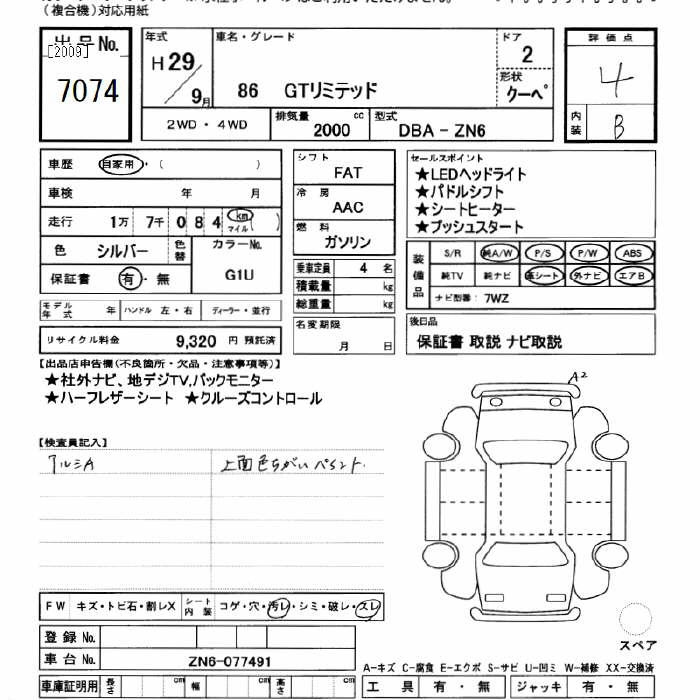 (複合機)対応用紙
出品No.
[2009]
7074
年式
H29
9月
車名・グレード
86 GTリミテッド
ドア
2
形状
クーペ
評価点
4
内装
B
2WD・4WD
排気量
2000 cc
型式
DBA-ZN6
車歴 自家用・( )
車検 年 月
走行 1万 7千 0 8 4 km マイル ( )
色 シルバー 色替
カラーNo.
G1U
保証書 有・無
モデル年式 年 ハンドル 左・右 ディーラー・並行
リサイクル料金 9,320 円 預託済
シフト
FAT
冷房
AAC
燃料
ガソリン
乗車定員 4 名
積載量 kg
総重量 kg
名変期限
月 日
セールスポイント
★LEDヘッドライト
★パドルシフト
★シートヒーター
★プッシュスタート
装備品
S/R 純A/W P/S P/W ABS
純TV 純ナビ 革シート 外ナビ エアB
ナビ型番: 7WZ
後日品
保証書 取説 ナビ取説
【出品店申告欄(不良箇所・欠品・注意事項等)】
★社外ナビ、地デジTV,バックモニター
★ハーフレザーシート ★クルーズコントロール
【検査員記入】
アルミA
上面色ちがいペイント.
A2
FW キズ・トビ石・割レX
シート内装 コゲ・穴・汚レ・シミ・破レ・スレ
登録No.
車台No. ZN6-077491
車庫証明用 長さ cm 幅 cm 高さ cm
スペア
A-キズ C-腐食 E-エクボ S-サビ U-凹ミ W-補修 XX-交換済
工具 有・無 ジャッキ 有・無